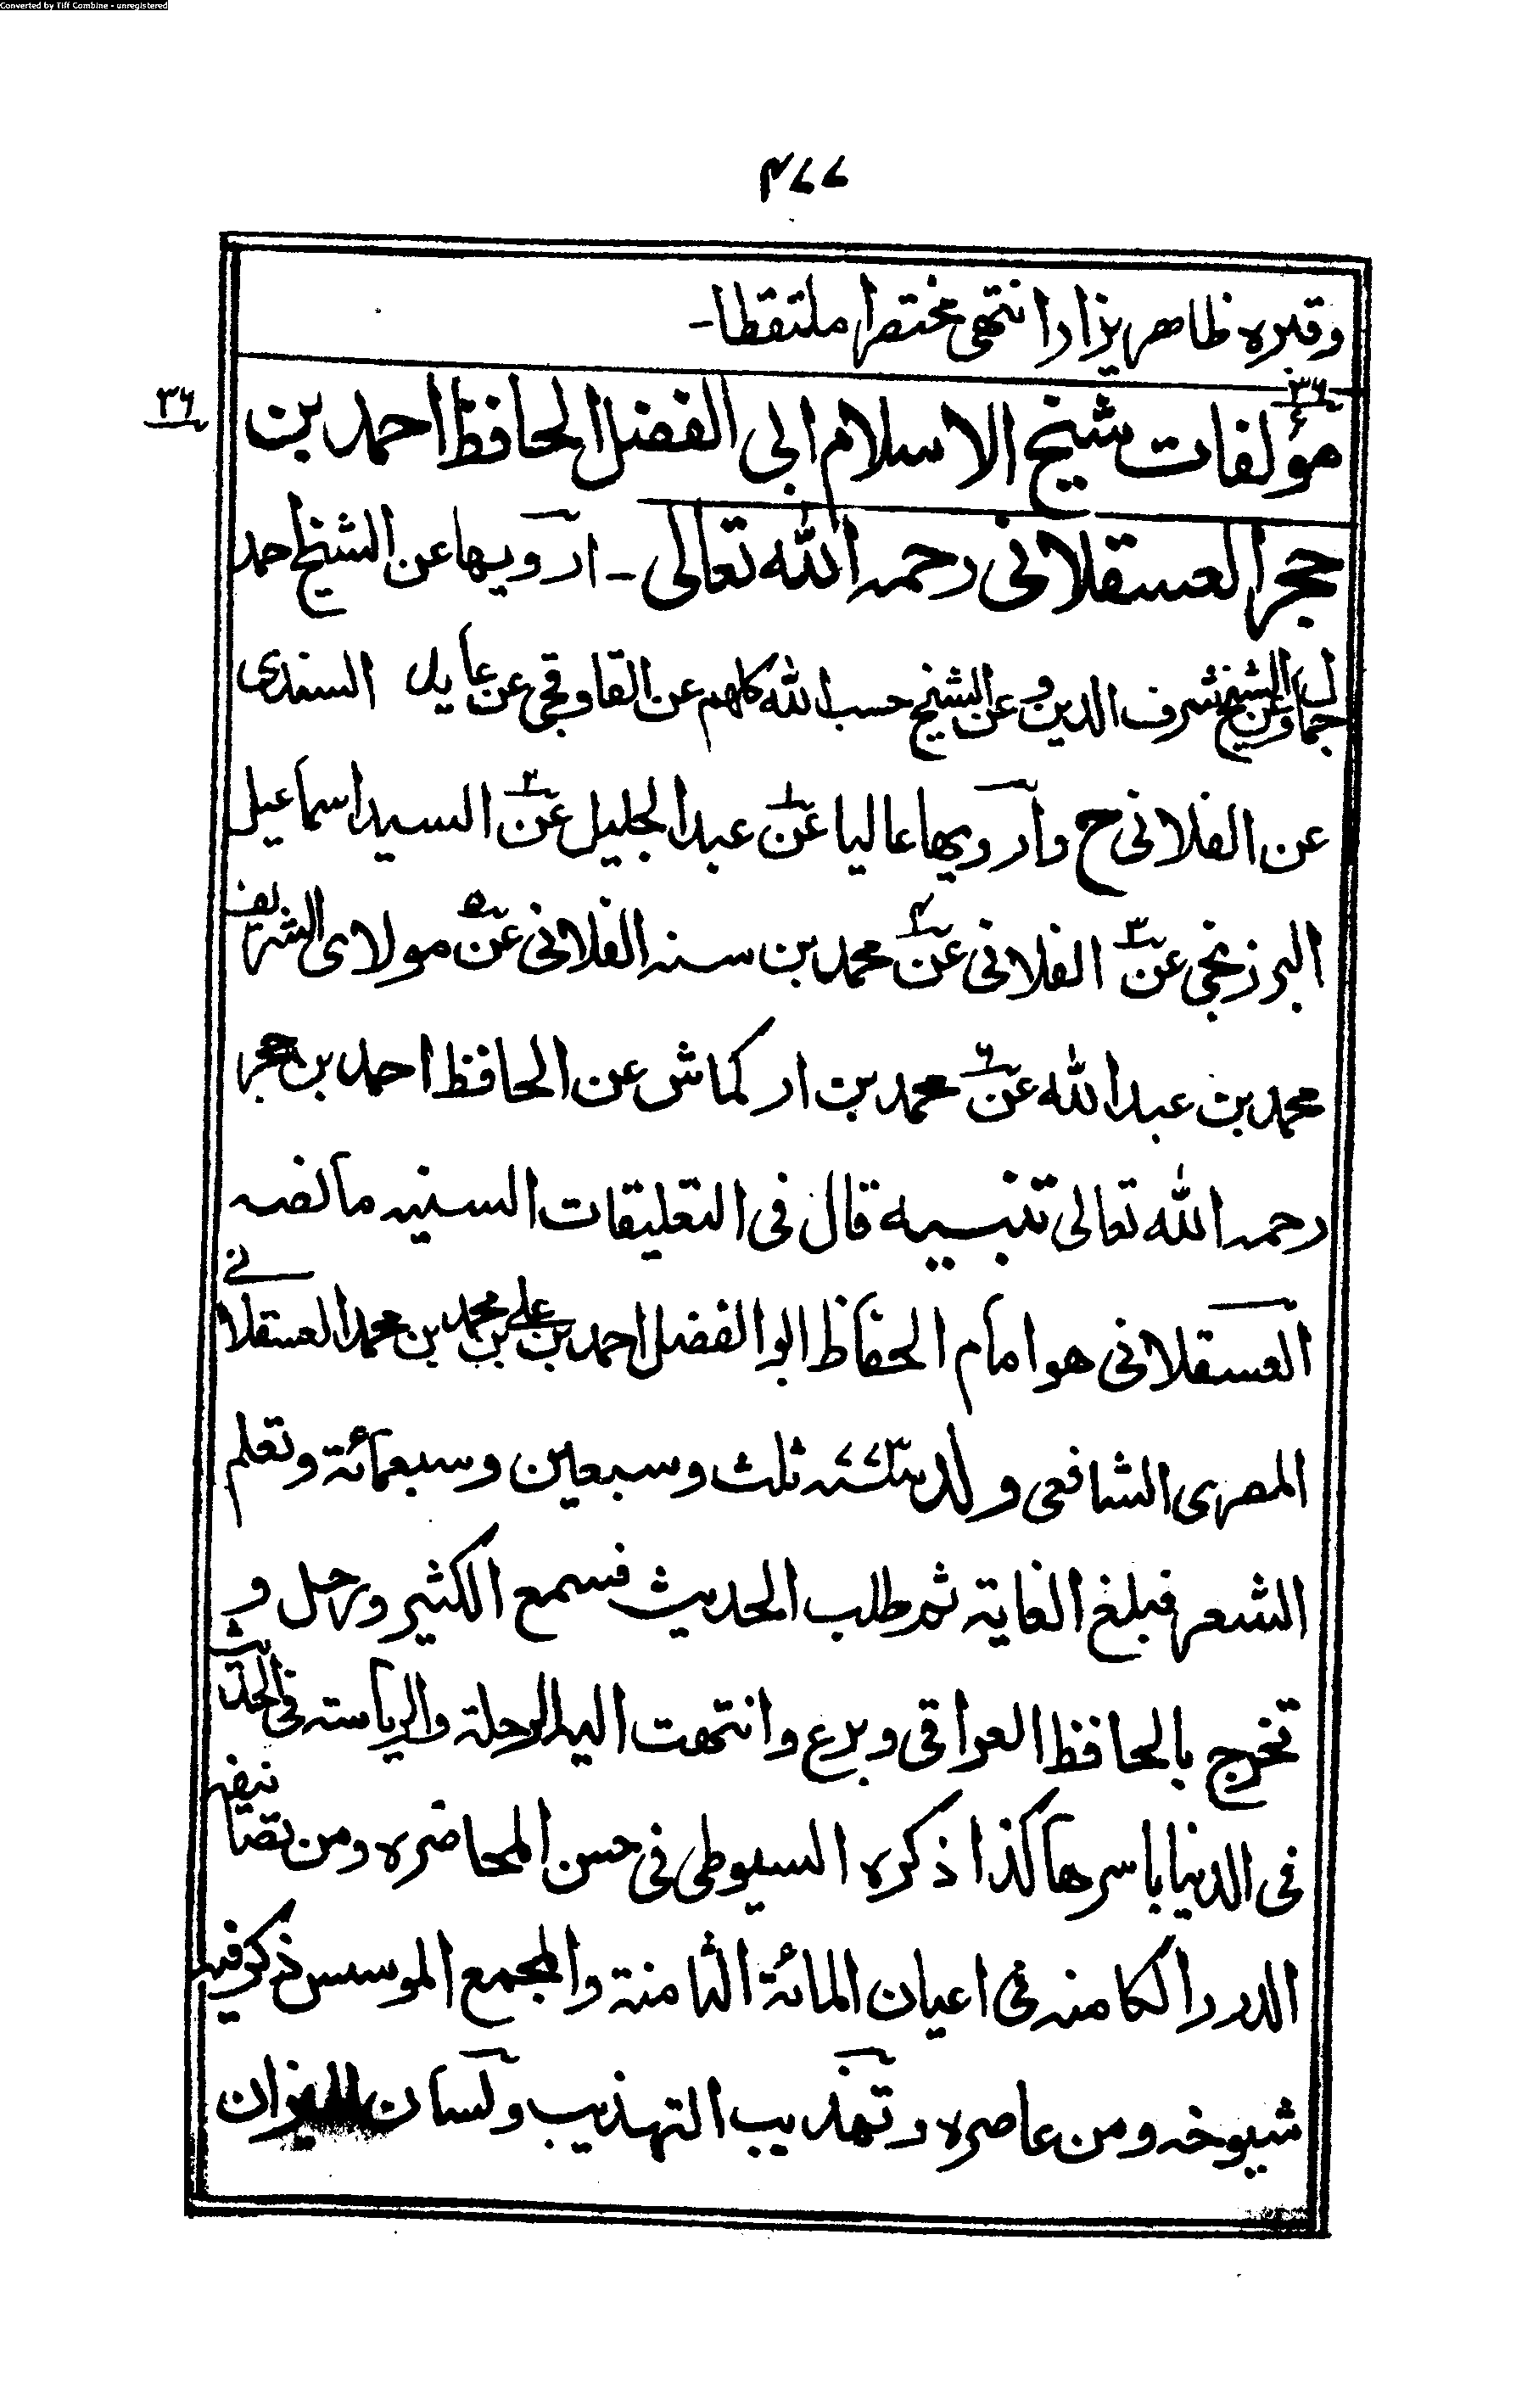 Converted by Tiff Combine - unregistered
۴۷۷
وقبره ظاهر يزار انتهى مختصرا ملتقطا-
۳۶
۳۶
مؤلفات شيخ الاسلام ابى الفضل الحافظ احمد بن
حجر العسقلانى رحمه الله تعالى - ارويها عن الشيخ احمد
جمال وعن الشيخ شرف الدين وعن الشيخ حسب الله كلهم عن القاوقجى عن عابد السندى
عن الفلانى ح وارويها عاليا عن ۱ عبد الجليل عن ۲ السيد اسماعيل
البرزنجى عن ۳ الفلانى عن ۴ محمد بن سنه الفلانى عن ۵ مولاى الشريف
محمد بن عبد الله عن ۶ محمد بن اركماش عن الحافظ احمد بن حجر
رحمه الله تعالى تنبيه قال فى التعليقات السنيه ما نصه
العسقلانى هو امام الحفاظ ابو الفضل احمد بن على بن محمد بن محمد العسقلانے
المصرى الشافعى ولد سنة ۷۷۳ ثلث وسبعين وسبعمائة وتعلم
الشعر فبلغ الغاية ثم طلب الحديث فسمع الكثير ورحل و
تخرج بالحافظ العراقى وبرع وانتهت اليه الرحلة والرياسته فى الحديث
فى الدنيا باسرها كذا ذكره السيوطى فى حسن المحاضره ومن تصانيفه
الدرر الكامنه فى اعيان المائة الثامنة والمجمع الموسس ذكر فيه
شيوخه ومن عاصره وتهذيب التهذيب ولسان الميزان